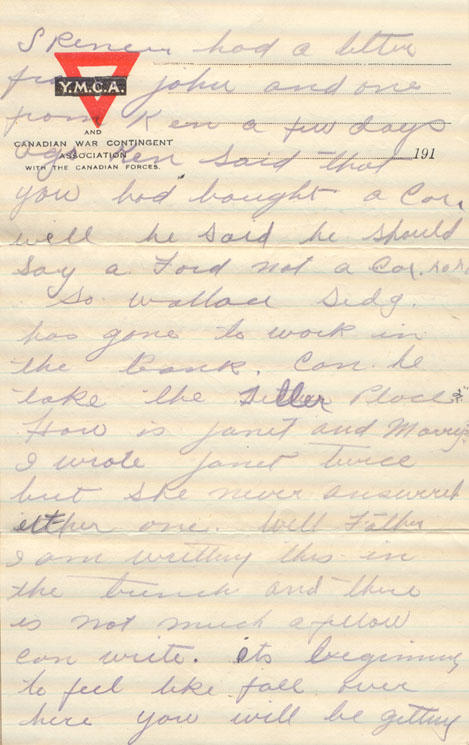 Spencer had a letter
from John and one
from Ken a few days
ago Ken said that
Y.M.C.A.
AND
CANADIAN WAR CONTINGENT
ASSOCIATION
WITH THE CANADIAN FORCES.
191
you had bought a Car.
well he said he should
say a Ford not a Car. ha ha
So Wallace Sidg.
has gone to work in
the bank. Can he
take the Teller Place.
How is Janet and
I wrote Janet twice
but she never answered
either one. Well Father
I am writting this in
the trench and there
is not much a fellow
can write. its beginning
to feel like fall over
here you will be getting